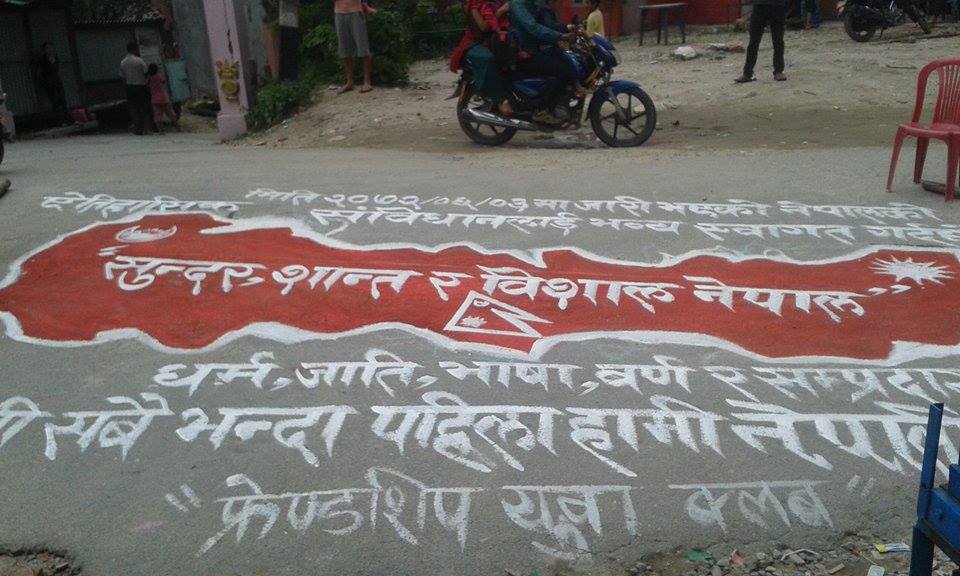 ऐतिहासिक मिति २०७२/०६/०३ मा जारी भएको नेपालको
संविधानलाई भव्य स्वागत गर्दै
"सुन्दर, शान्त र विशाल नेपाल"
धर्म, जाति, भाषा, वर्ण र सम्प्रदाय
सबै भन्दा पहिला हामी नेपाली
"फ्रेण्डशिप युवा क्लब"